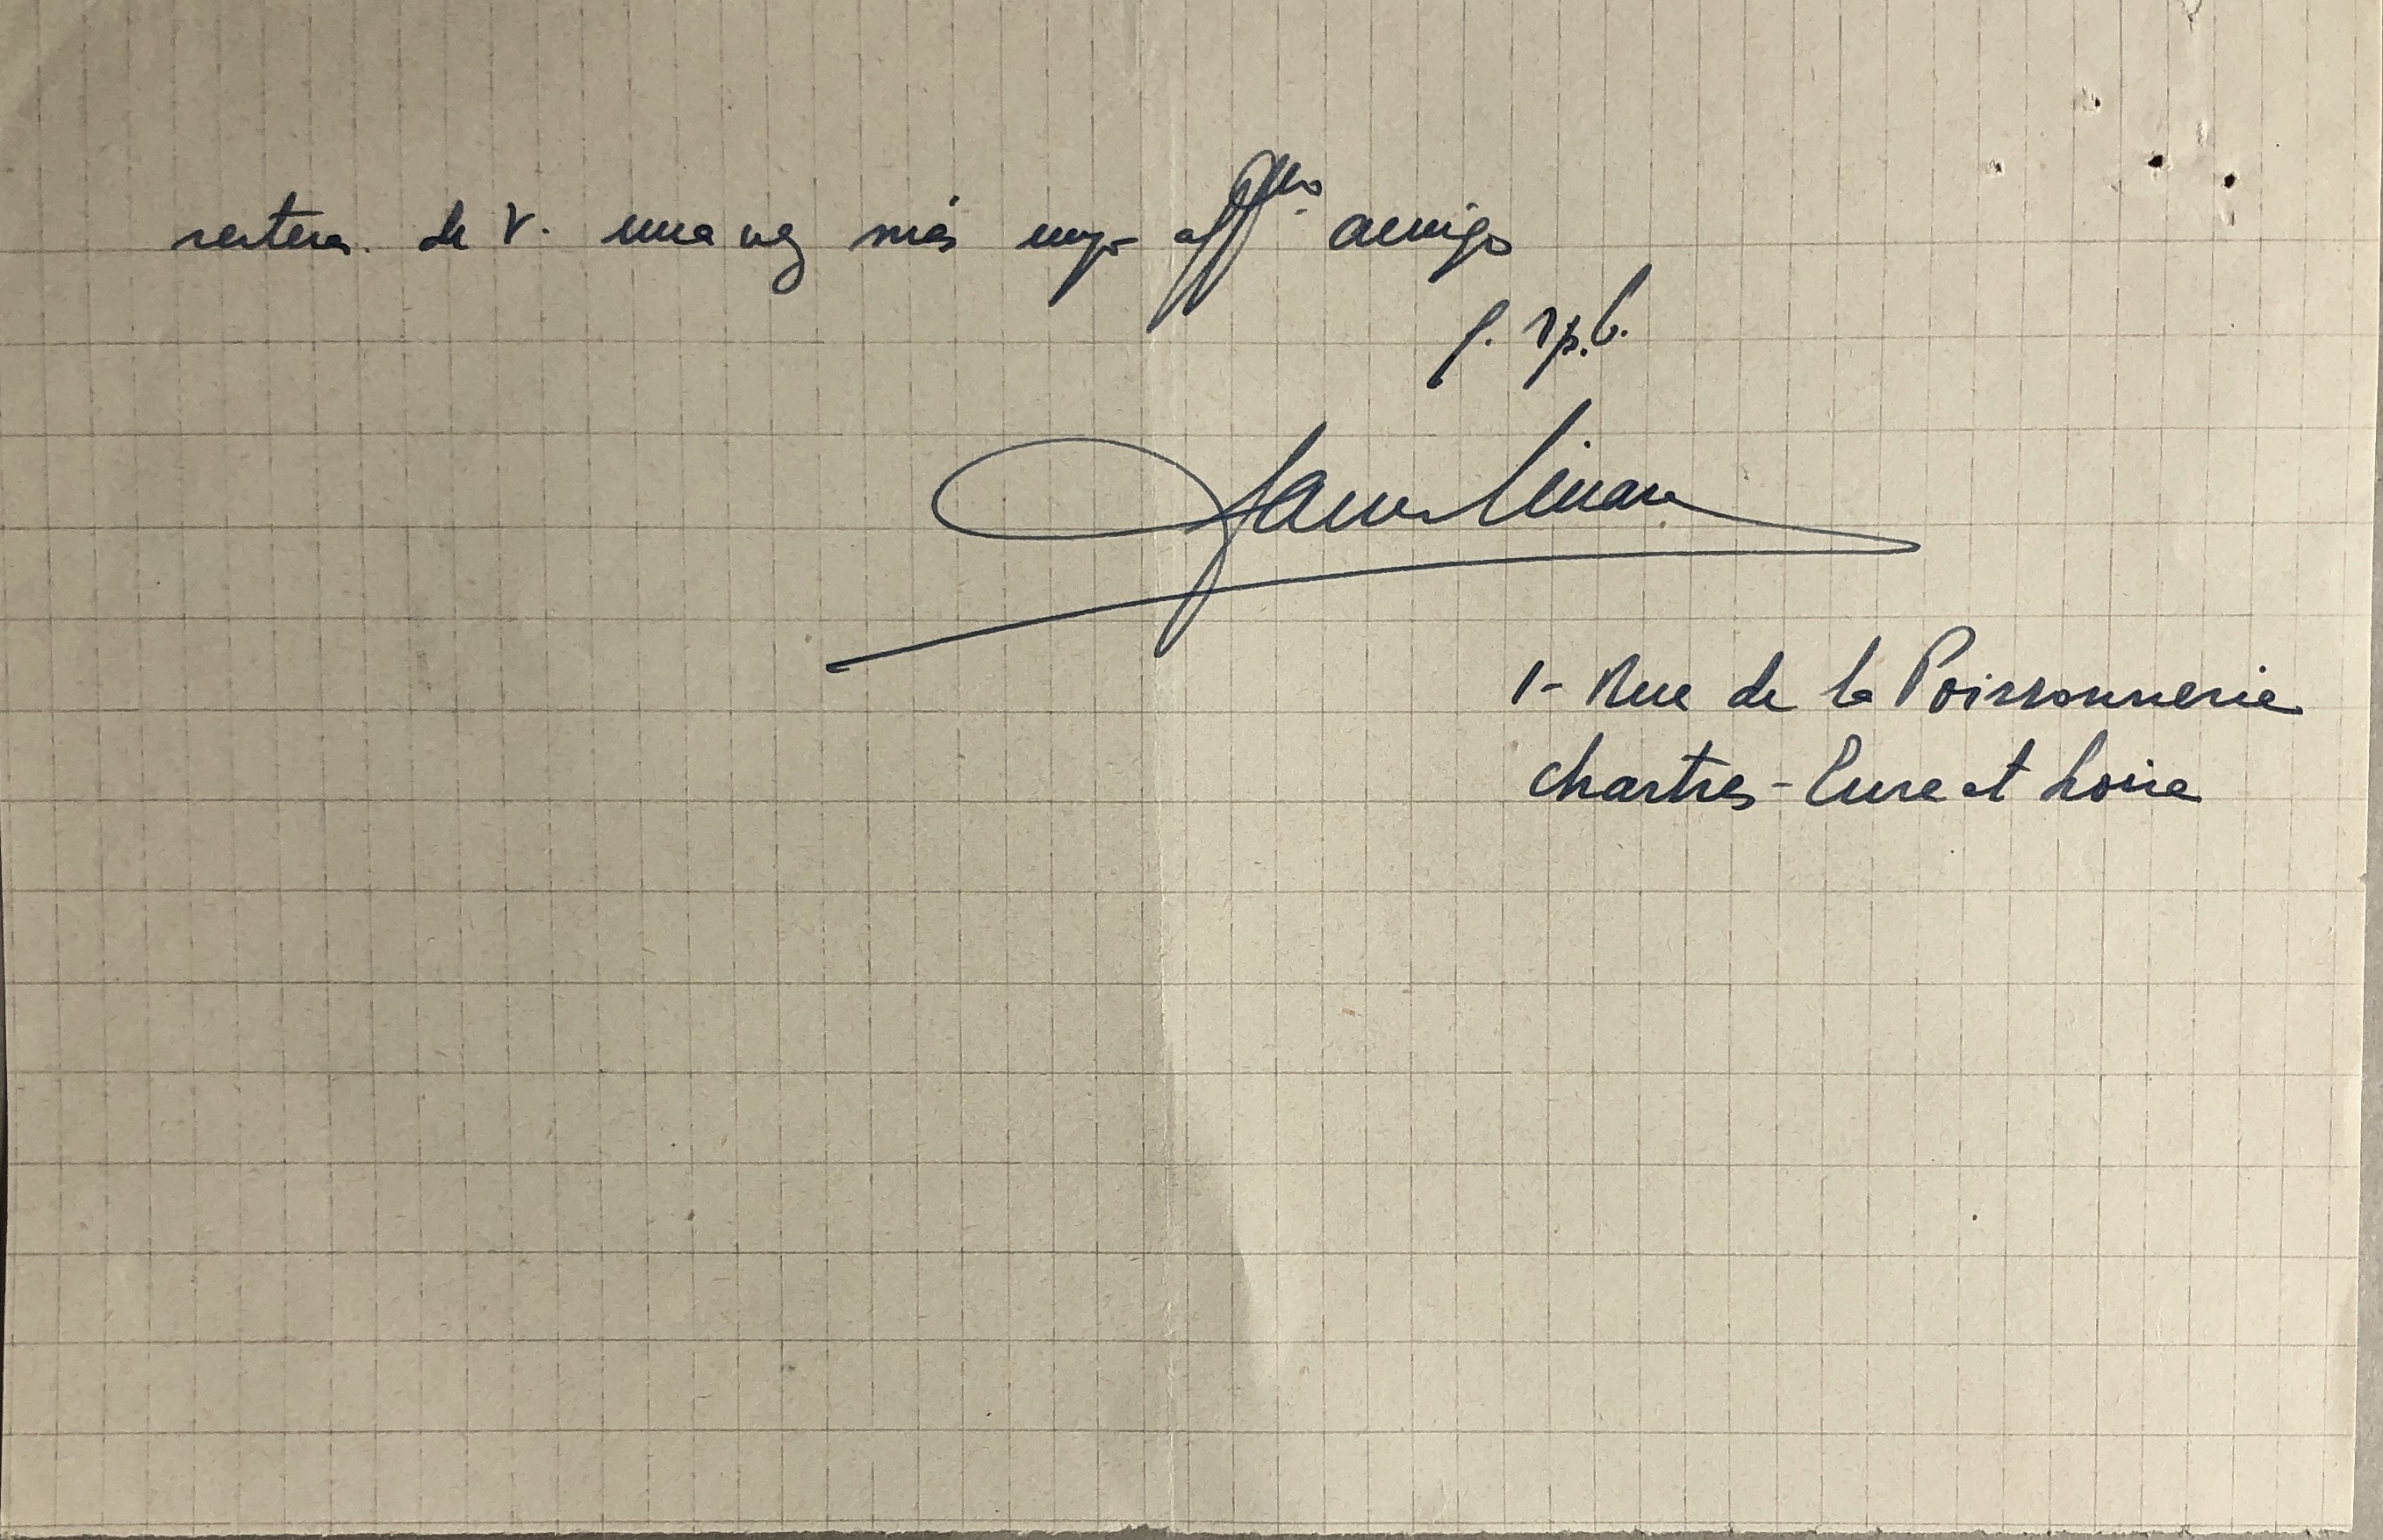 restera de V. una vez más muy affmo. amigo
q. s.p.b.
1- Rue de la Poissonnerie
Chartres - Eure et Loire